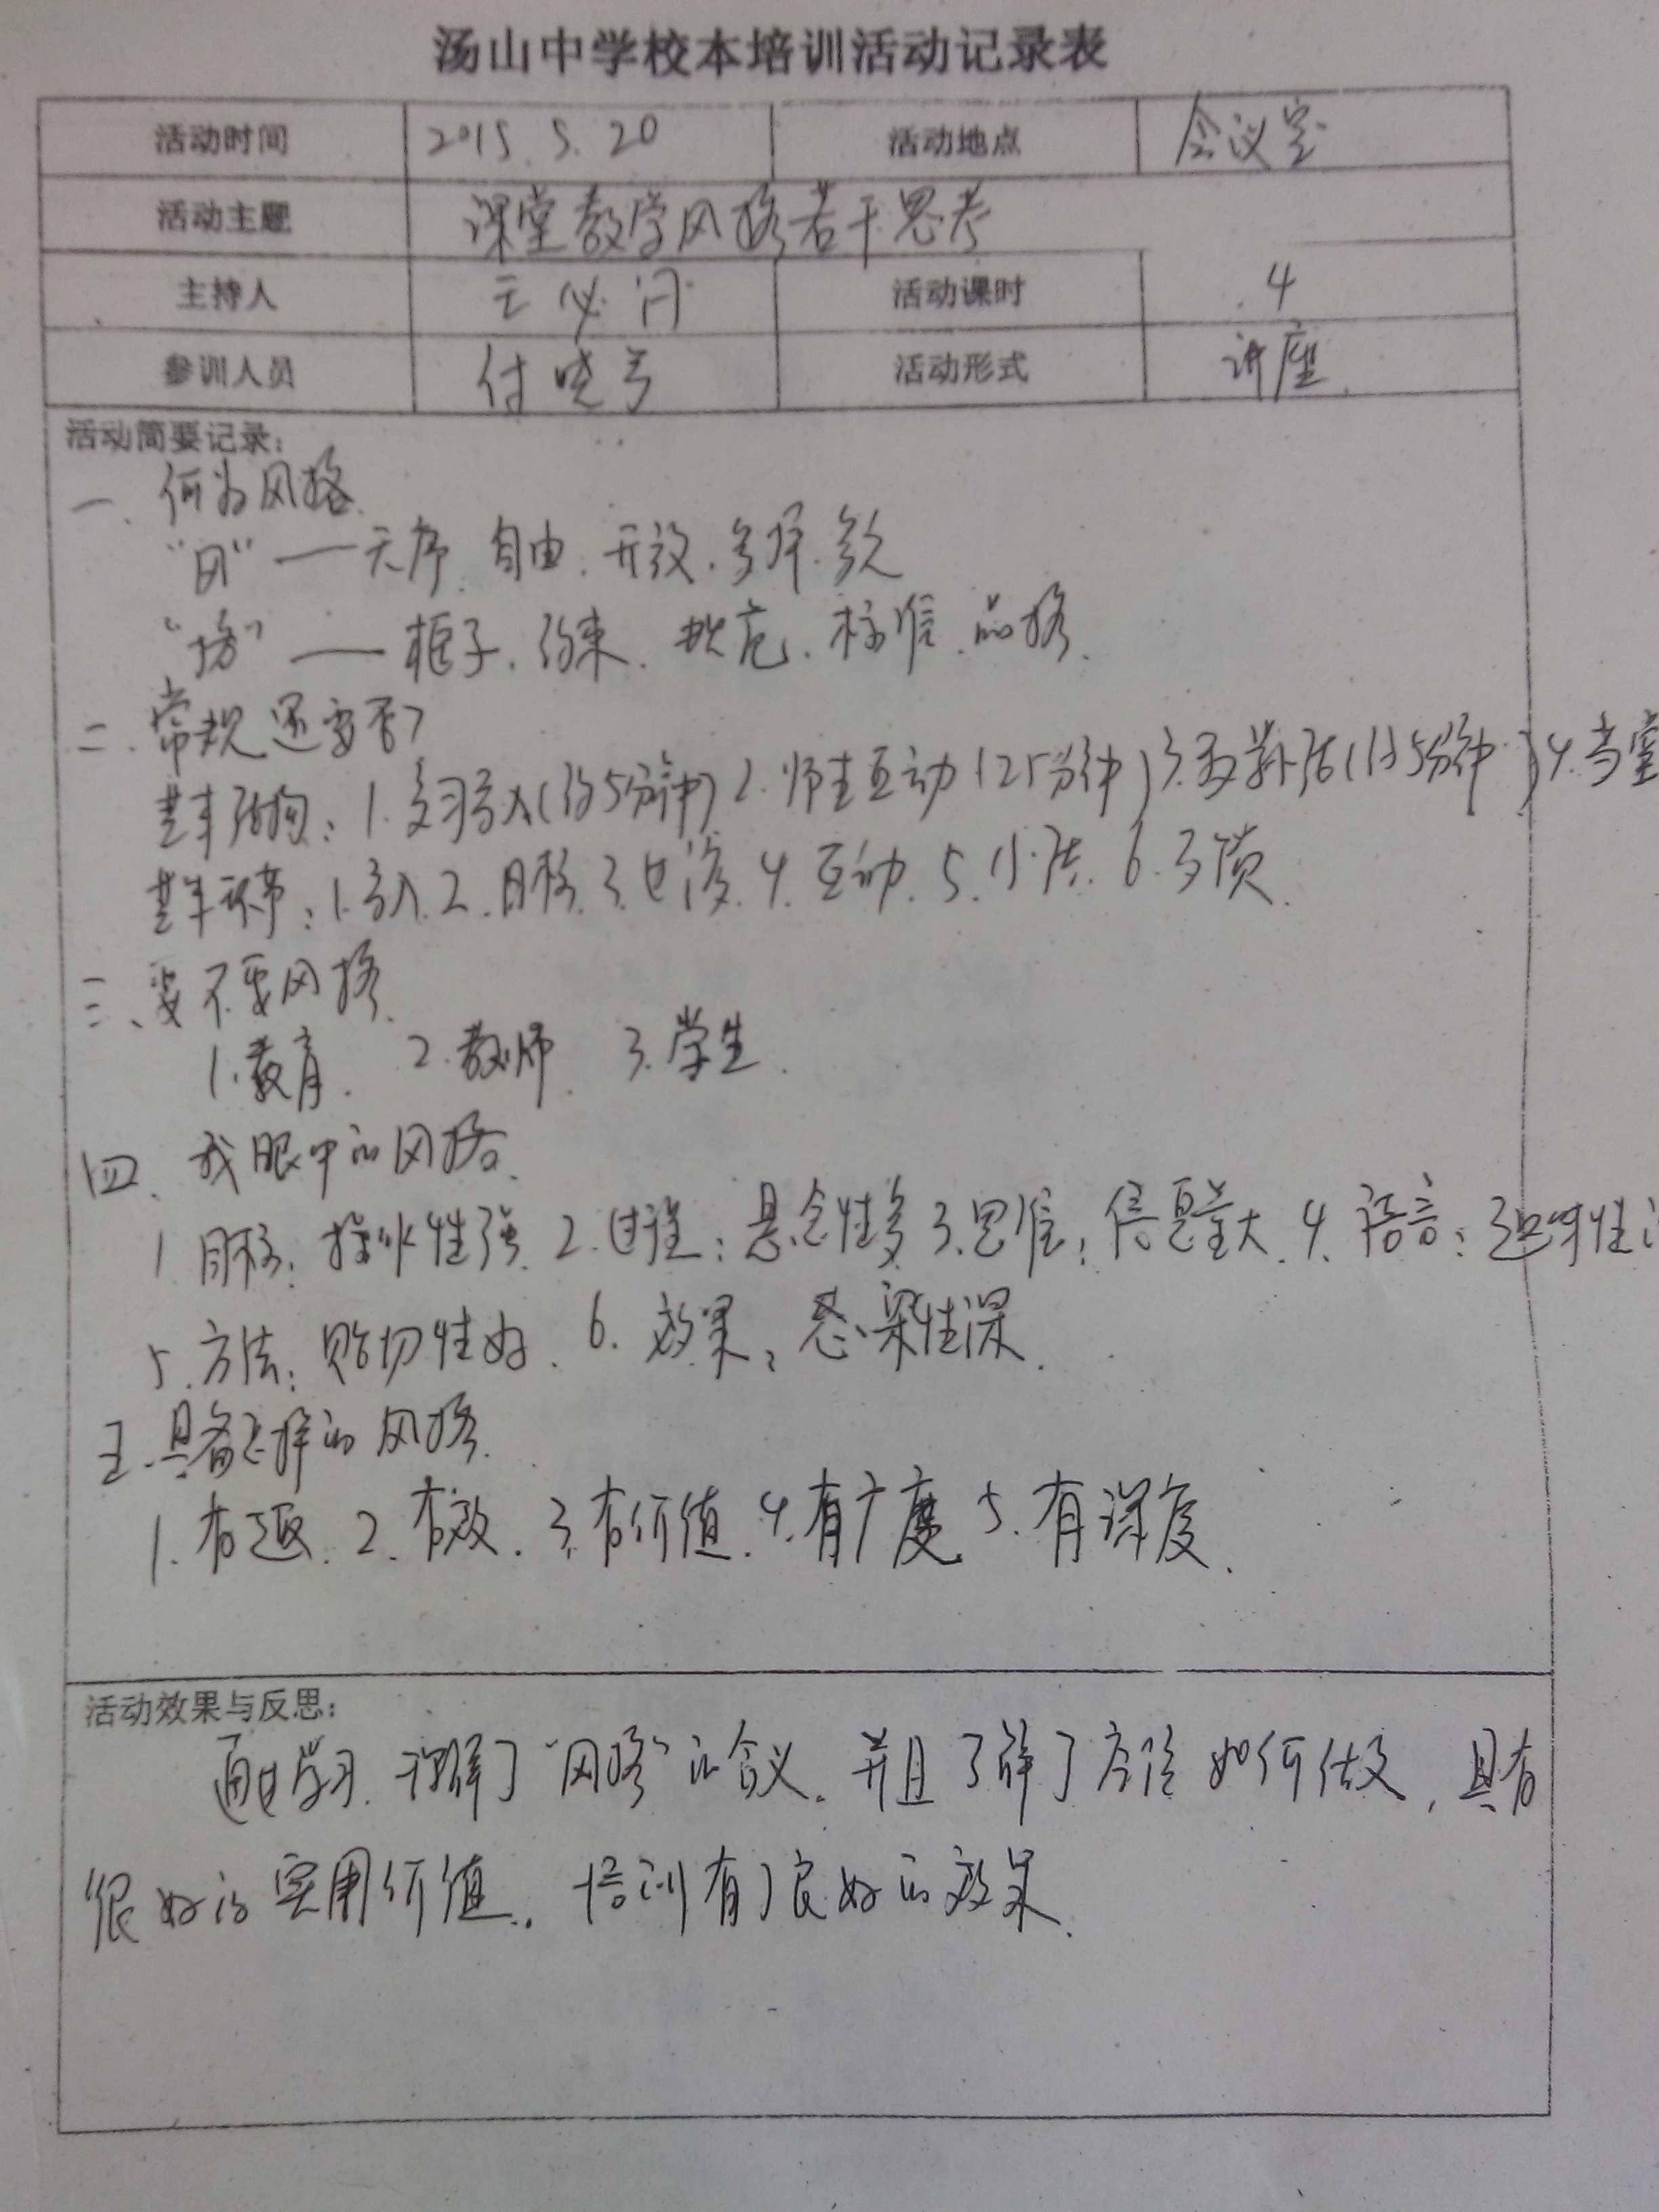 汤山中学校本培训活动记录表
活动时间 2015.5.20 活动地点 会议室
活动主题 课堂教学风格若干思考
主持人 王必闩 活动课时 4
参训人员 付晓芳 活动形式 讲座
活动简要记录：
一、何为风格
“风”——无序、自由、开放、多样、多久
“格”——框子、约束、规范、标准、品格
二、常规还要否？
基本结构：1.复习导入（约5分钟）2.师生互动（25分钟）3.反馈小结（约5分钟）4.当堂
基本环节：1.导入 2.目标 3.过渡 4.互动 5.小结 6.反馈
三、要不要风格
1.教育 2.教师 3.学生
四、我眼中的风格
1.目标：操作性强 2.过程：悬念性多 3.思维：信息量大 4.语言：
5.方法：贴切性好 6.效果：感染性深
五、具备怎样的风格
1.有趣 2.有效 3.有价值 4.有广度 5.有深度
活动效果与反思：
通过学习，理解了“风格”的含义，并且了解了应该如何做，具有
很好的实用价值，培训有了良好的效果